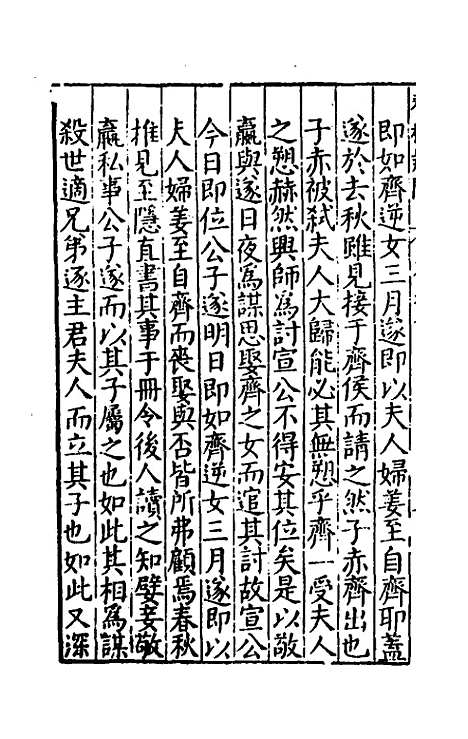 即如齊逆女三月遂即以夫人婦姜至自齊耶蓋
遂於去秋雖見接于齊侯而請之然子赤齊出也
子赤被弒夫人大歸能必其無愬乎齊一受夫人
之愬赫然興師為討宣公不得安其位矣是以敬
嬴與遂日夜為謀思娶齊之女而逭其討故宣公
今日即位公子遂明日即如齊逆女三月遂即以
夫人婦姜至自齊而喪娶與否皆所弗顧焉春秋
推見至隱直書其事于冊令後人讀之知嬖妾敬
嬴私事公子遂而以其子屬之也如此其相為謀
殺世適兄弟逐主君夫人而立其子也如此又深